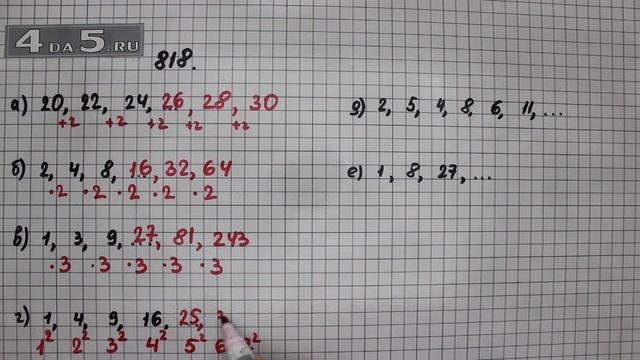 4DA5.RU
818.
а) 20, 22, 24, 26, 28, 30
+2 +2 +2 +2 +2
б) 2, 4, 8, 16, 32, 64
·2 ·2 ·2 ·2 ·2
в) 1, 3, 9, 27, 81, 243
·3 ·3 ·3 ·3 ·3
г) 1, 4, 9, 16, 25,
1² 2² 3² 4² 5² 6
д) 2, 5, 4, 8, 6, 11, ...
е) 1, 8, 27, ...